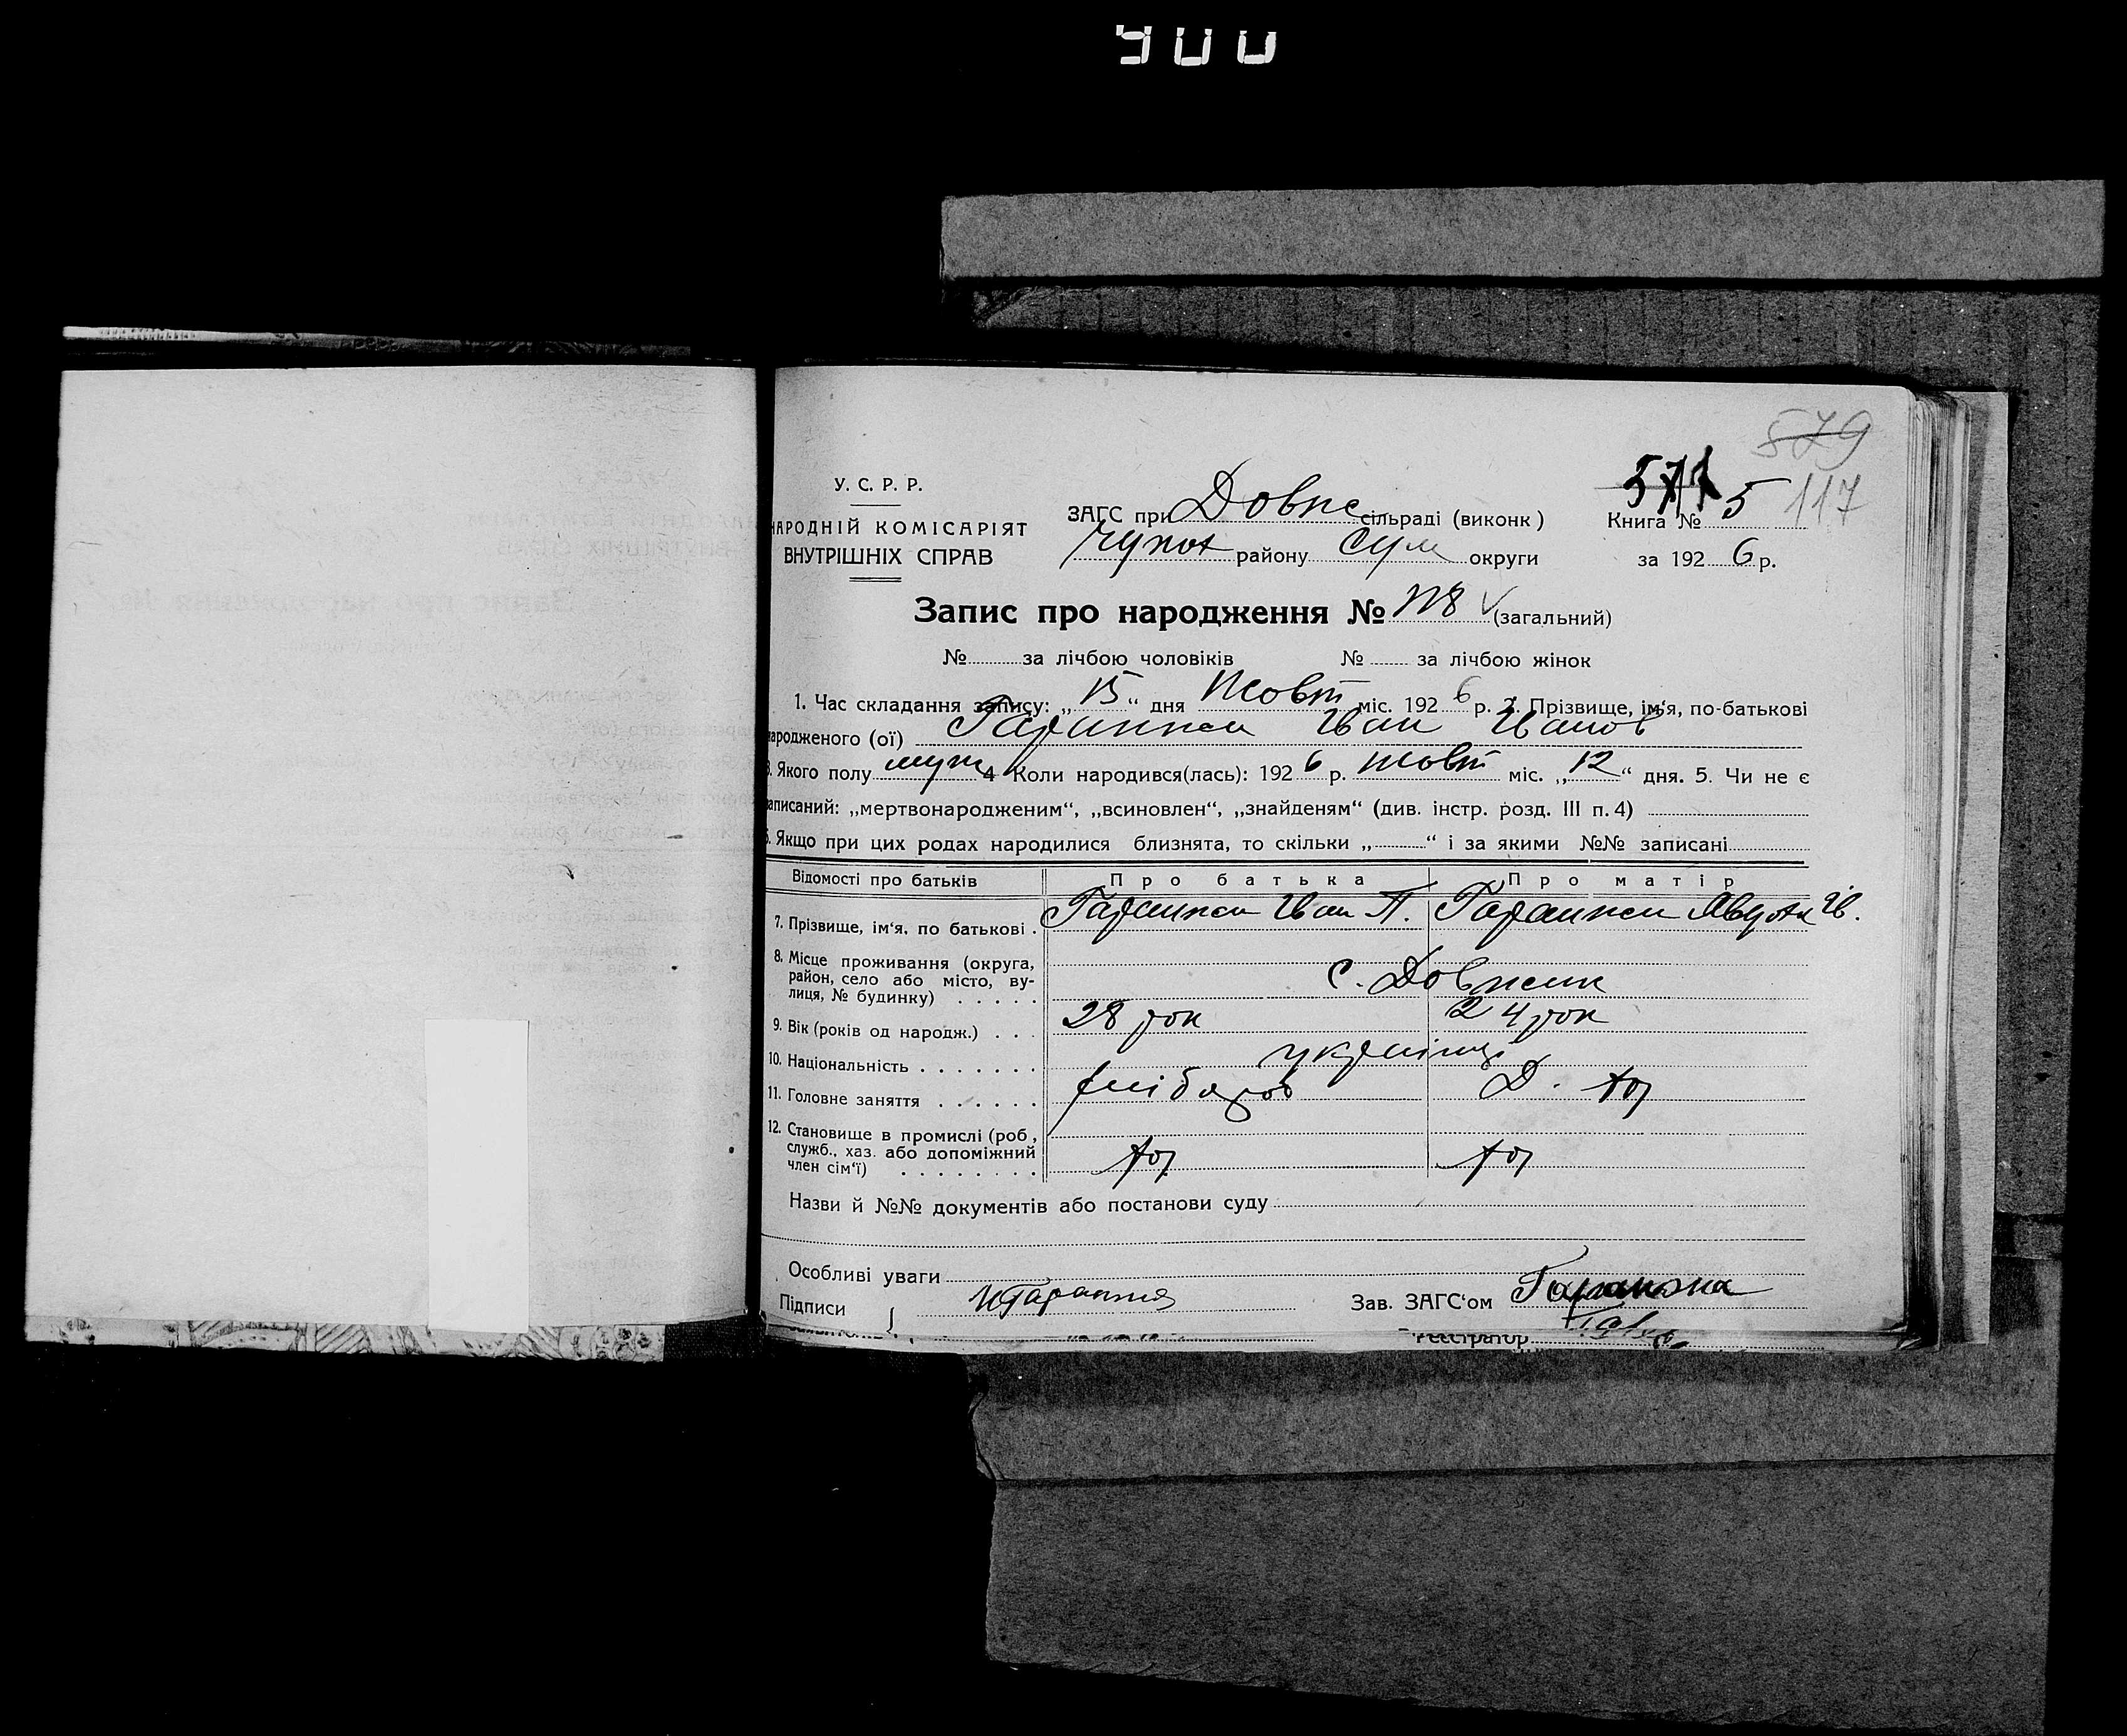 900
579
У. С. Р. Р.
НАРОДНІЙ КОМІСАРІЯТ
ВНУТРІШНІХ СПРАВ
ЗАГС при Довж сільраді (виконк)
району Сум округи
5 117
Книга №
за 1926 р.
Запис про народження № 118 (загальний)
№ за лічбою чоловіків № за лічбою жінок
1. Час складання запису: „15“ дня Жовт міс. 1926 р. 2. Прізвище, ім‘я, по-батькові
народженого (ої) Гаранжа Іван Іванов
3. Якого полу муж 4 Коли народився(лась): 1926 р. жовт міс. „12“ дня. 5. Чи не є
записаний: „мертвонародженим“, „всиновлен“, „знайденям“ (див. інстр. розд. III п. 4)
6. Якщо при цих родах народилися близнята, то скільки „ “ і за якими №№ записані
Відомості про батьків Про батька Про матір
7. Прізвище, ім‘я, по батькові . Гаранжа Іван П. Гаранжа Ів.
8. Місце проживання (округа,
район, село або місто, ву-
лиця, № будинку) . . . . . с. Довжик
9. Вік (років од народж.) . . . 28 рок 24 рок
10. Національність . . . . . . . українці
11. Головне заняття . . . . . . хлібороб Д.
12. Становище в промислі (роб,
служб., хаз. або допоміжний
член сім‘ї) . . . . . . . .
Назви й №№ документів або постанови суду
Особливі уваги
Підписи И Гаранжа Зав. ЗАГС‘ом Гаранжа
Реєстратор